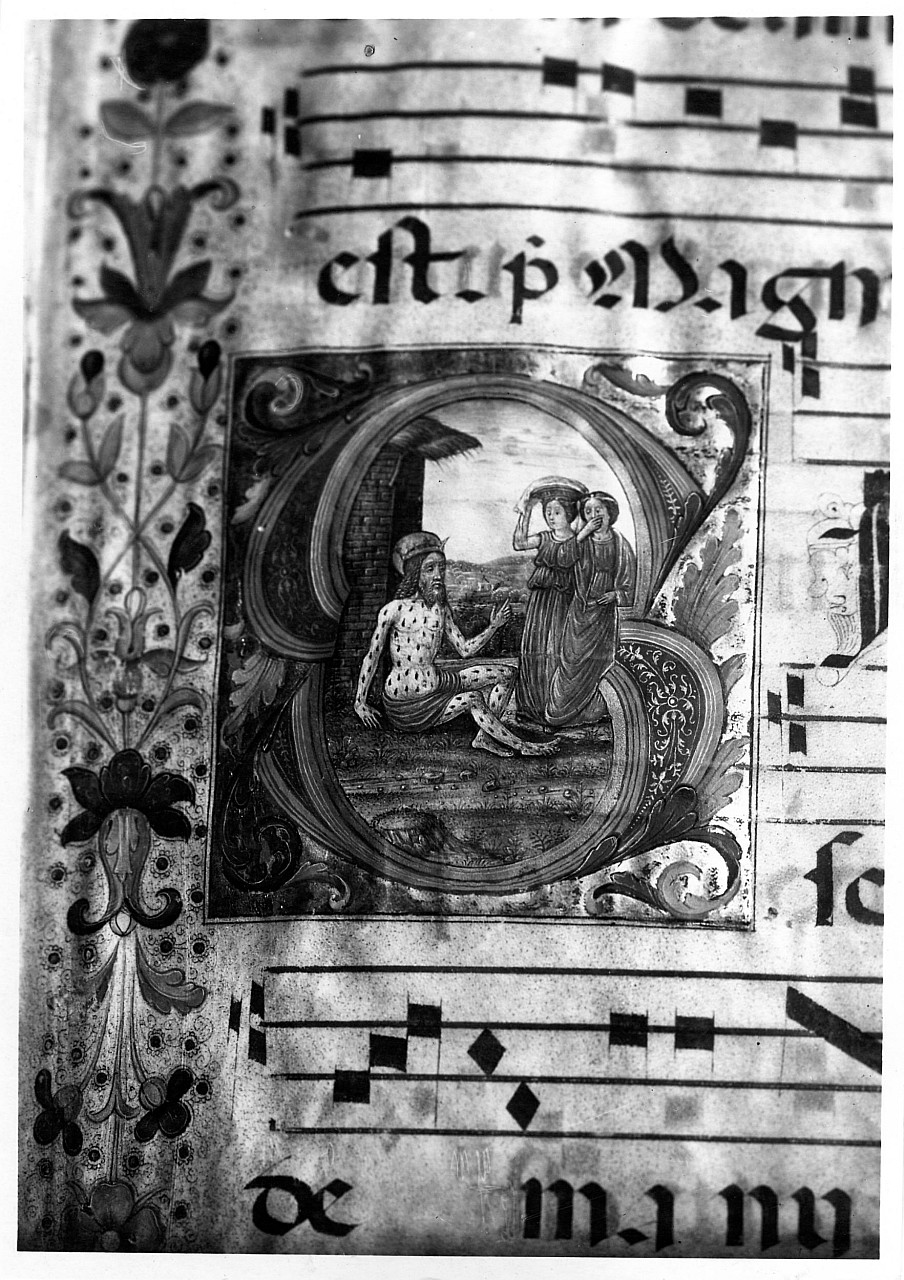 est. p̄ Magn
S
ſc
de ma nu